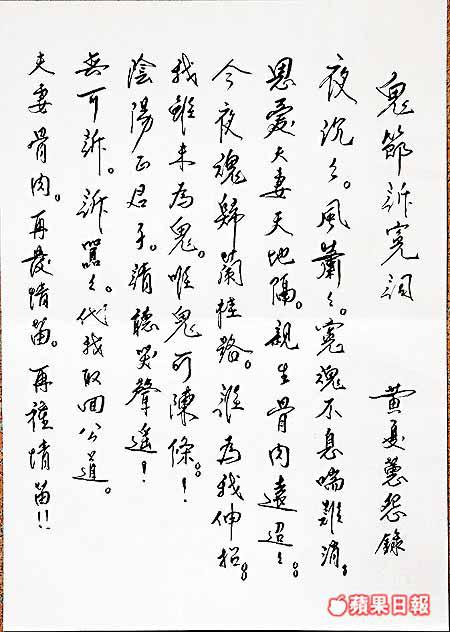 鬼節訴冤詞 黃夏蕙怨錄
夜沉々。風蕭々。冤魂不息喘難消。
恩愛夫妻天地隔。親生骨肉遠迢々。
今夜魂歸蘭桂路。誰為我伸招。
我雖未為鬼。唯鬼可陳條。！
陰陽正君子。請聽哭聲遙！
無可訴。訴囂々。代我取回公道。
夫妻骨肉。再發情苗。再種情苗!!
蘋果日報